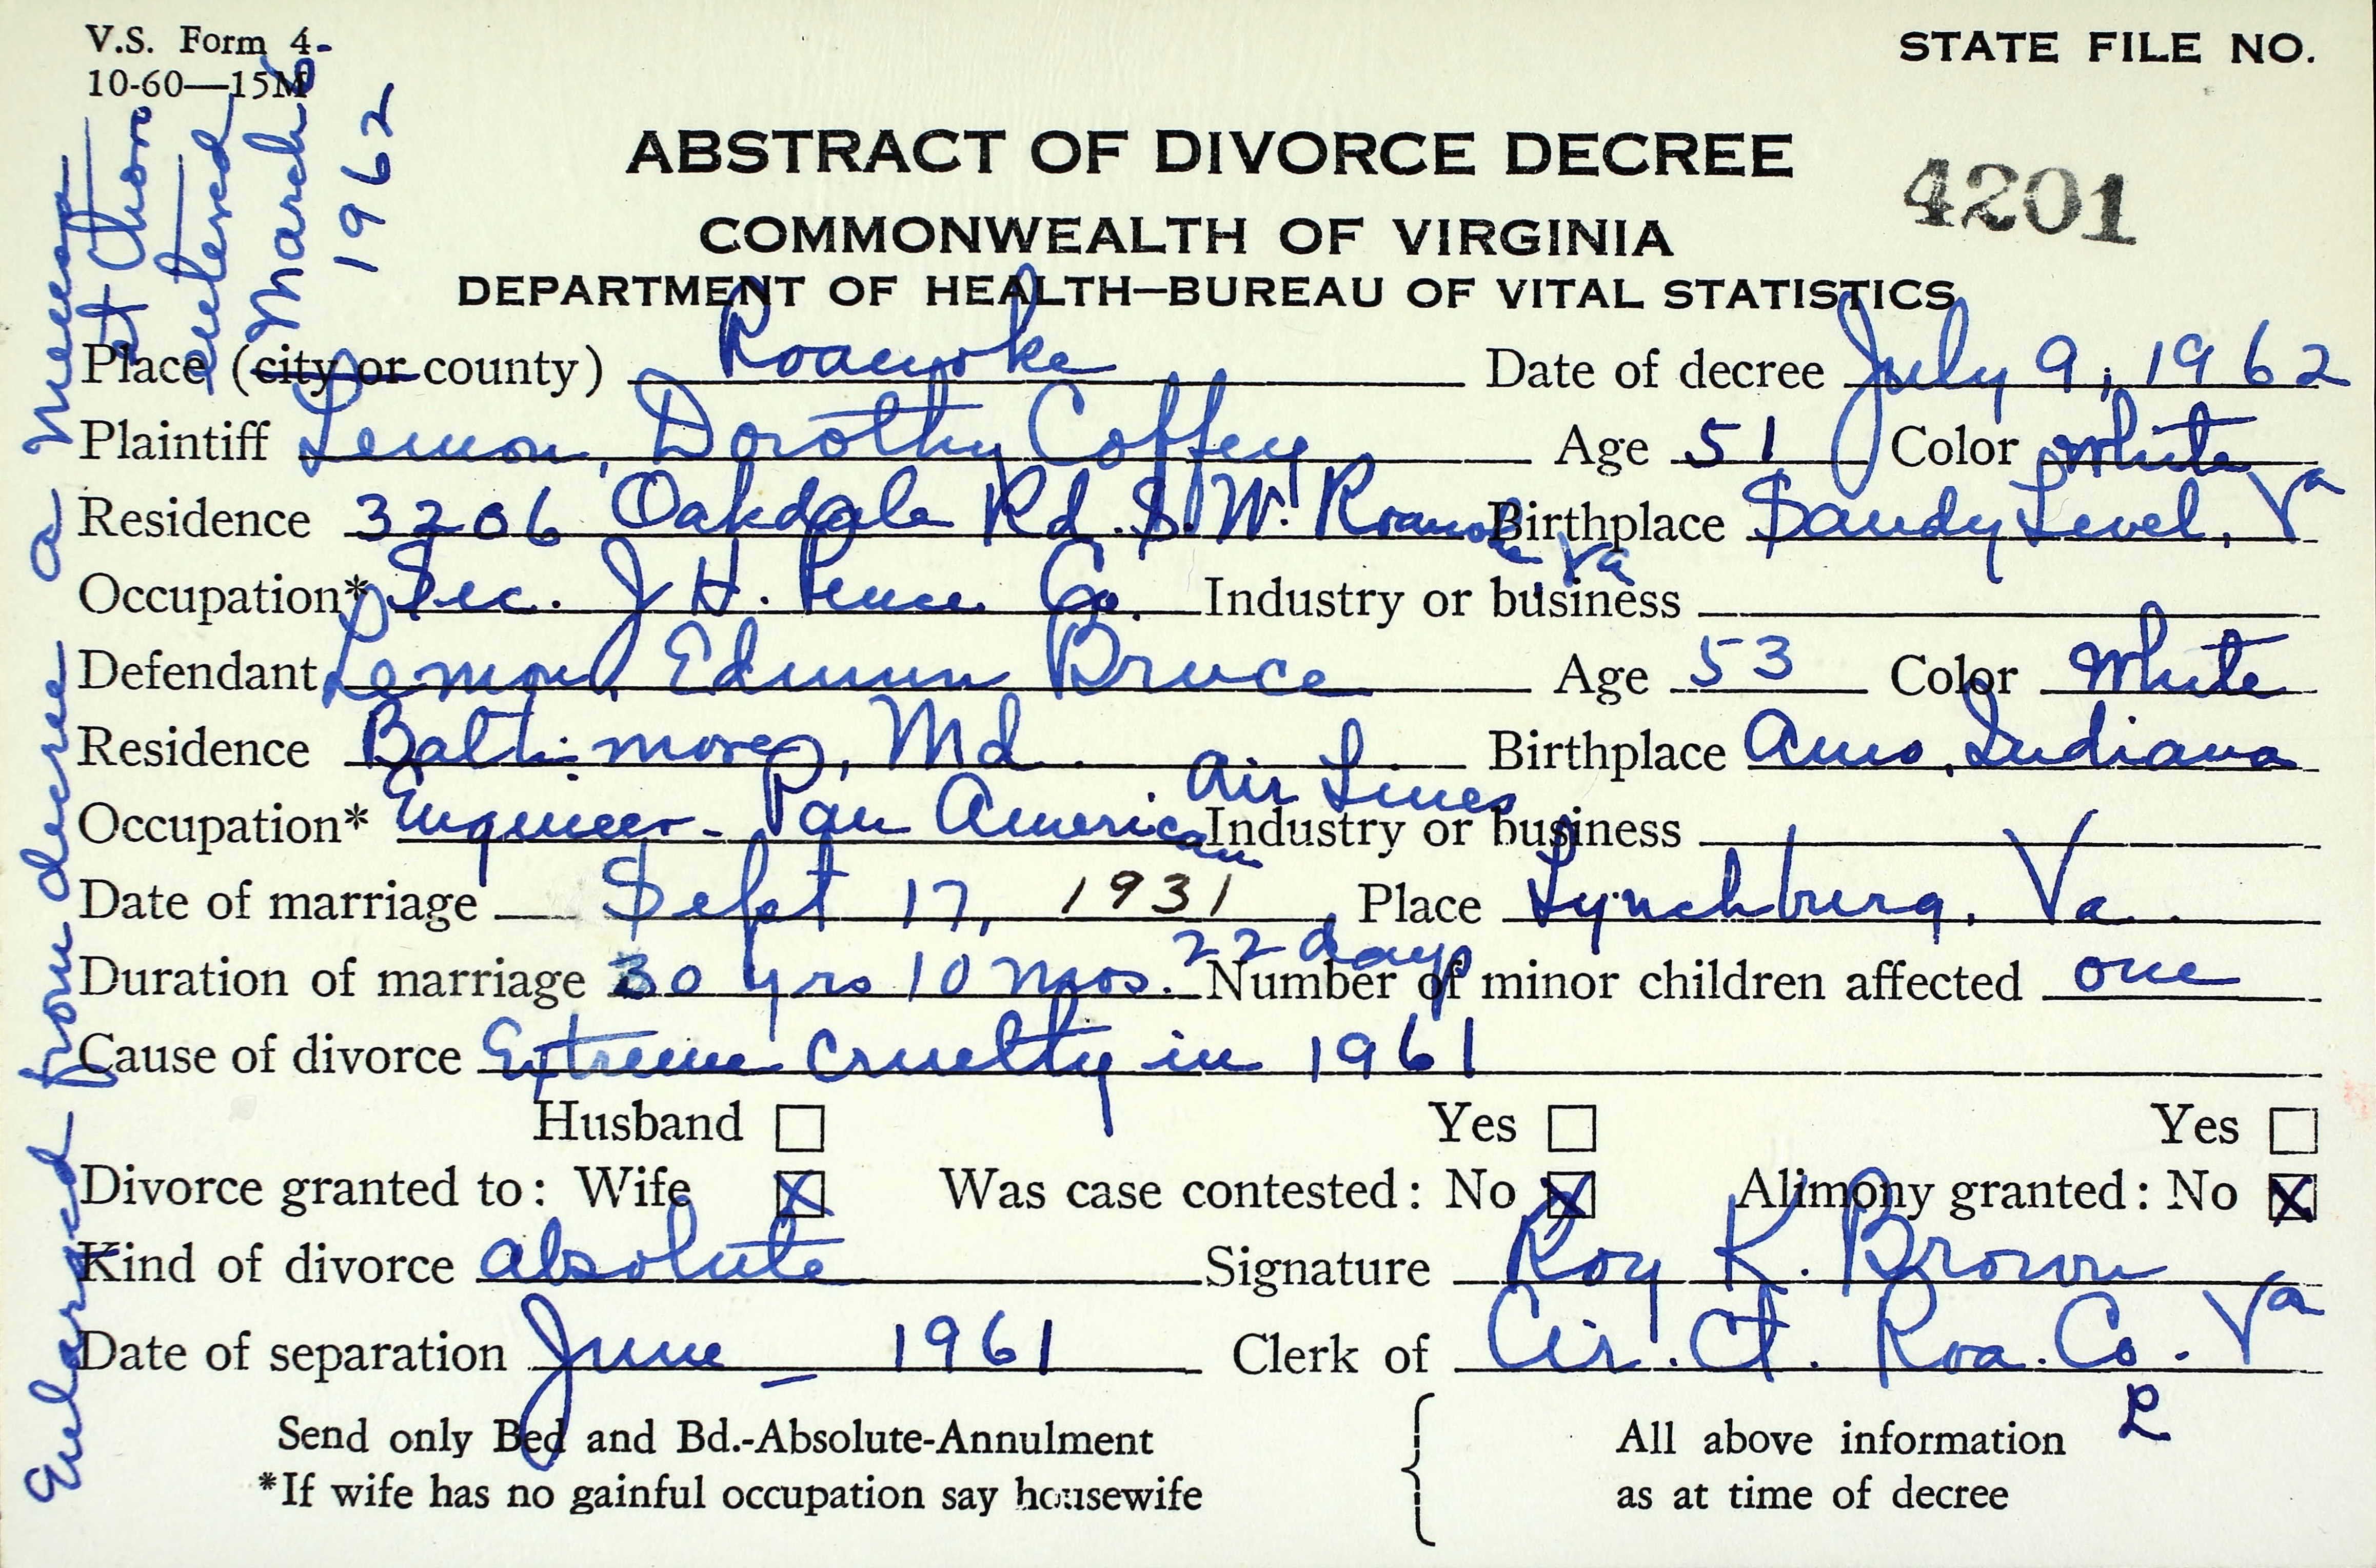 V.S. Form 4-
10-60—15M
STATE FILE NO.
ABSTRACT OF DIVORCE DECREE
4201
COMMONWEALTH OF VIRGINIA
DEPARTMENT OF HEALTH—BUREAU OF VITAL STATISTICS
Place (city or county) Roanoke Date of decree July 9, 1962
Plaintiff Lemon, Dorothy Coffey Age 51 Color White
Residence 3206 Oakdale Rd. S.W. Roanoke Va Birthplace Sandy Level, Va
Occupation* Sec. J H. Pence Co. Industry or business
Defendant Lemon, Edmun Bruce Age 53 Color White
Residence Baltimore, Md. Birthplace Amo, Indiana
Occupation* Engineer - Pan American Air Lines Industry or business
Date of marriage Sept 17, 1931 Place Lynchburg, Va.
Duration of marriage 30 yrs 10 mos. 22 days Number of minor children affected one
Cause of divorce Extreme cruelty in 1961
Husband Yes Yes
Divorce granted to: Wife X Was case contested: No X Alimony granted: No X
Kind of divorce absolute Signature Roy K. Brown
Date of separation June 1961 Clerk of Cir. Ct. Roa. Co. Va
R
Send only Bed and Bd.-Absolute-Annulment All above information
*If wife has no gainful occupation say housewife as at time of decree
Enlarged from decree a Mensa
et Thoro
entered
March 6
1962